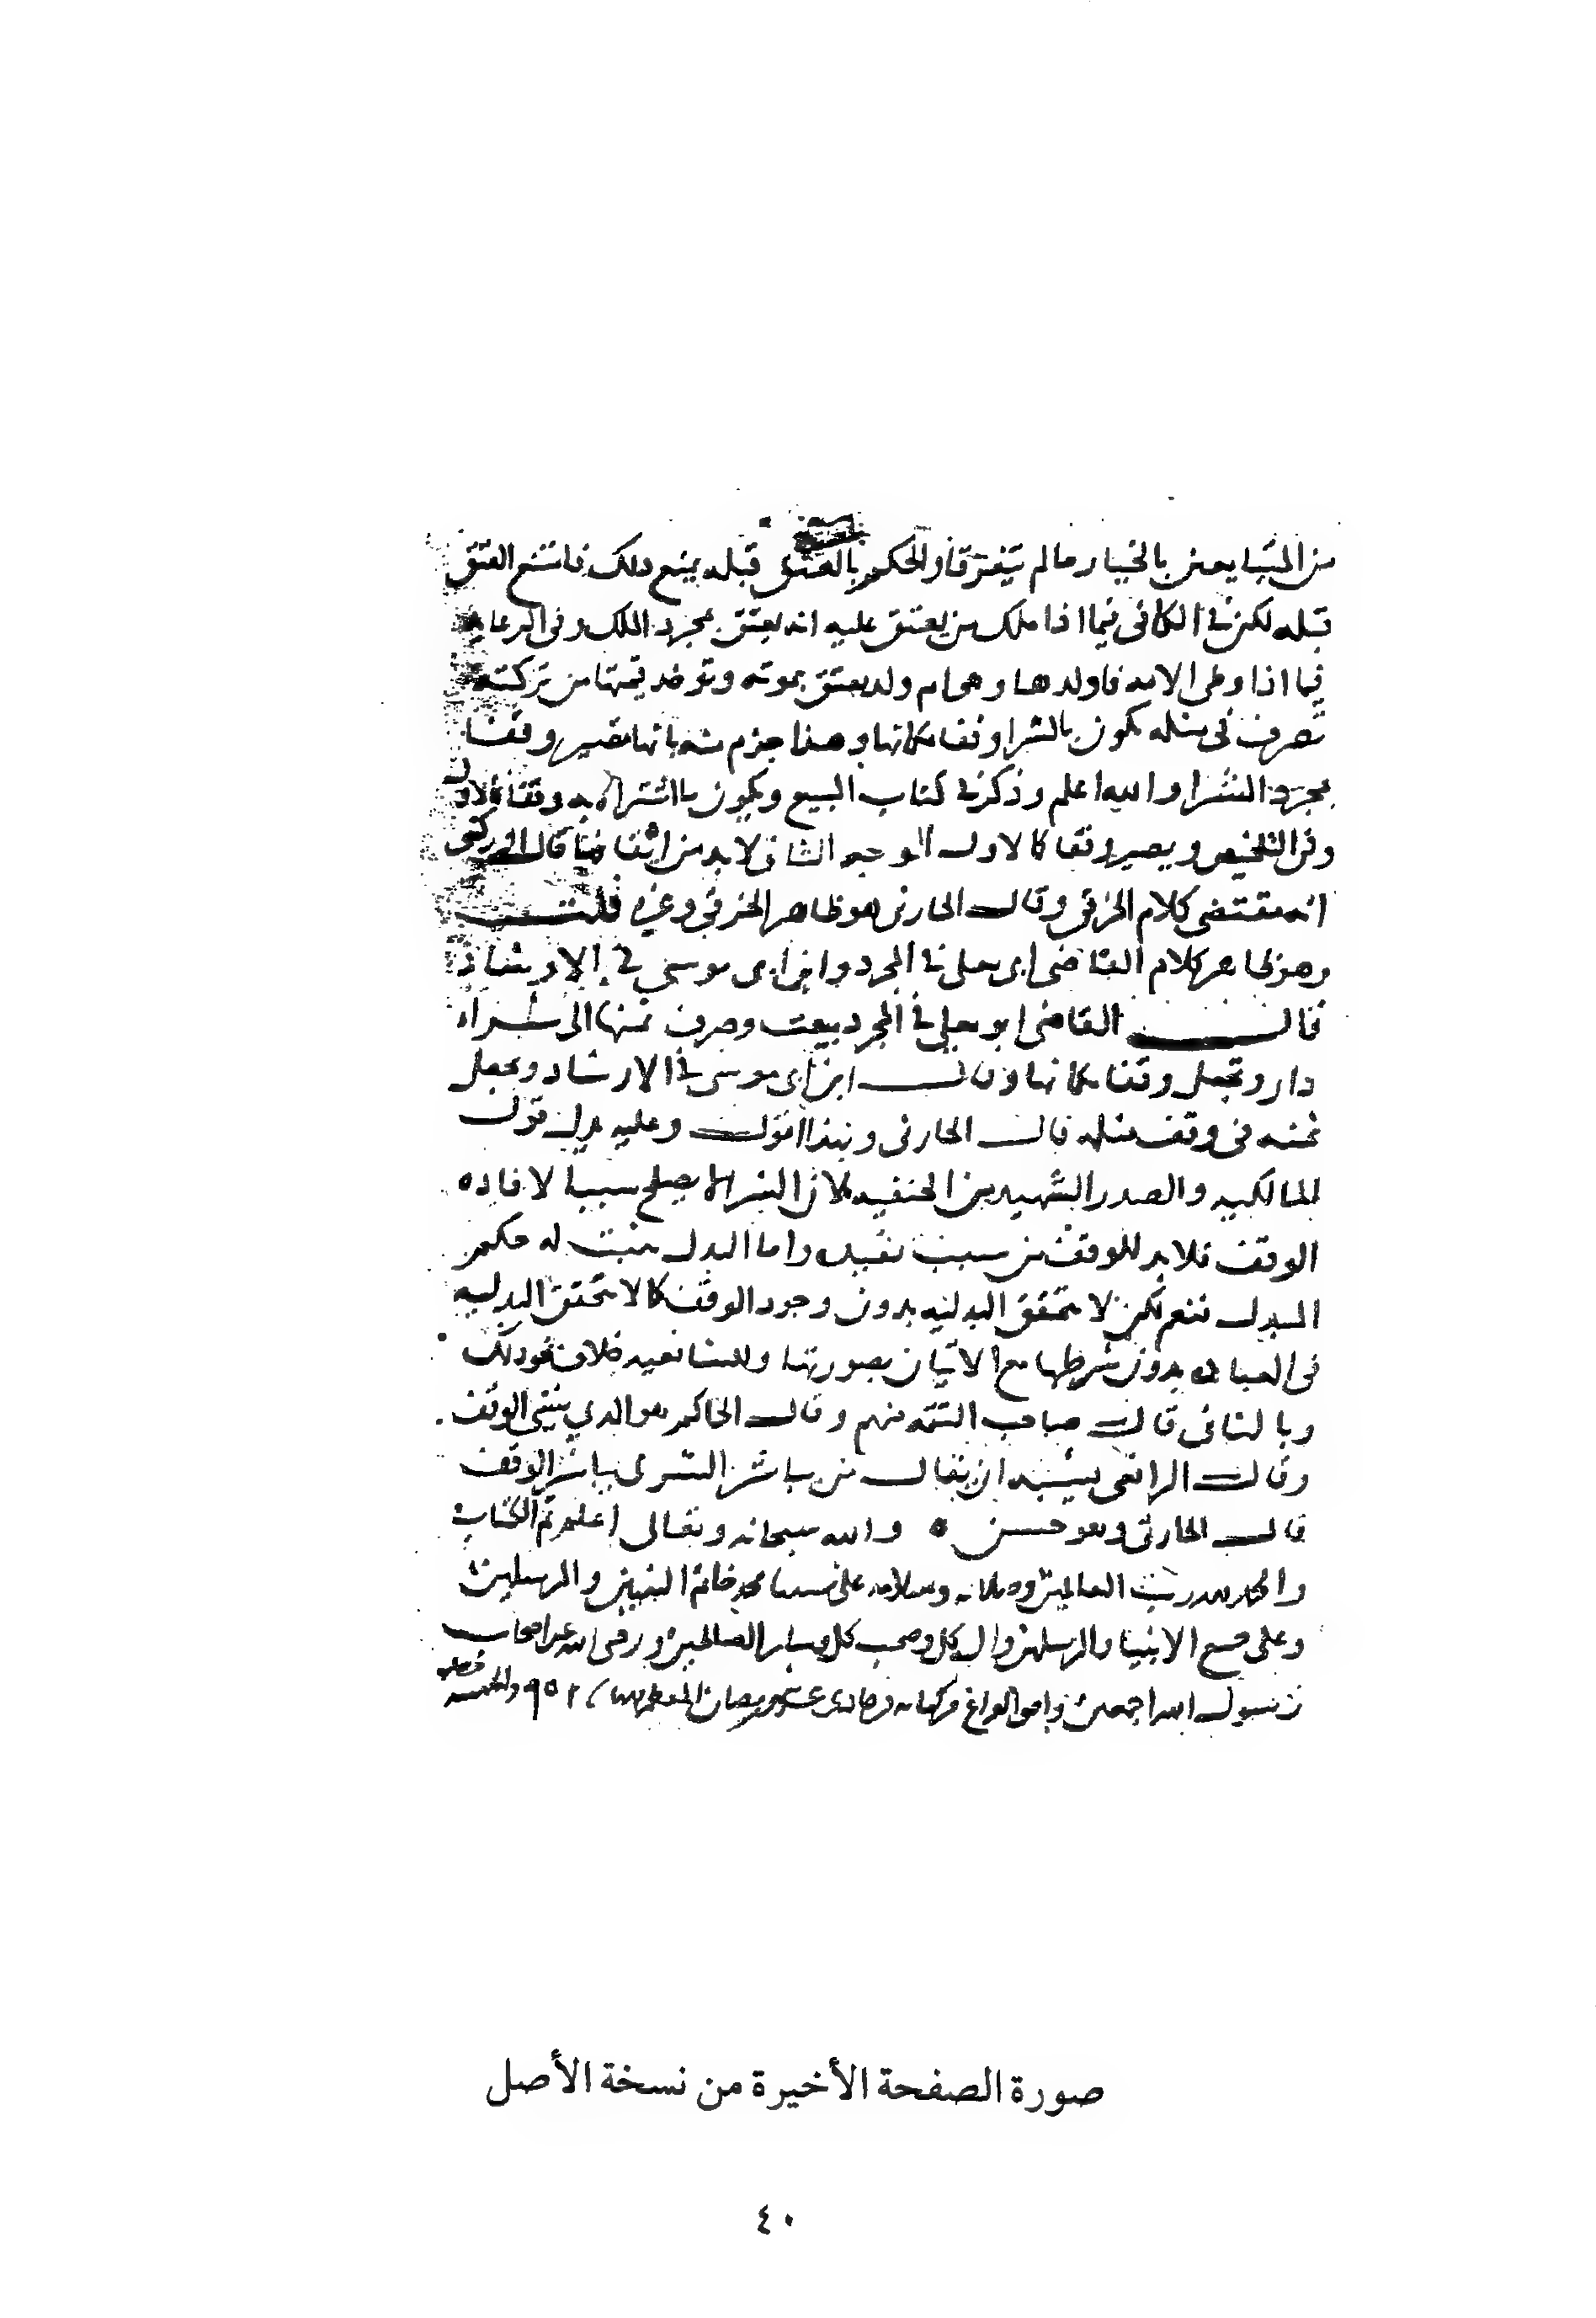 من المتبايعين بالخيار ما لم يتفرقا والحكم بالعتق قبله يمنع ذلك فامتنع العتق
قبله لكن في الكافي فيما اذا ملك من يعتق عليه انه يعتق بمجرد الملك وفى الرعايه
فيما اذا وطى الامه فاولدها وهى ام ولد يعتق بموته وتوخذ قيمتها من تركته
تصرف في مثله يكون بالشرا وقفا مكانها وهذا جزم منه بانها تصير وقفا
بمجرد الشرا والله اعلم وذكر في كتاب البيع ويكون ما اشتراه به وقفا كالاول
وفى التلخيص ويصير وقفا كالاول الوجه الثاني لابد من قال الزركشى
انه مقتضى كلام الخرقى وقال الحارثى هو ظاهر الخرقي وغيره قلت
وهو ظاهر كلام القاضى ابى يعلى في المجرد وابن ابى موسى في الارشاد
قال القاضى ابو يعلى في المجرد بيعت وصرف ثمنها الى شراء
دار وتجعل وقفا مكانها وقال ابن ابى موسى في الارشاد وجعل
ثمنه فى وقف مثله قال الحارثى وبهذا اقول وعليه يدل قول
المالكيه والصدر الشهيد من الحنفيه لان الشرا لا يصلح سببا لافاده
الوقف فلا بد للوقف من سبب يفيده واما البدل يثبت له حكم
المبدل فنعم لكن لا تتحقق البدليه بدون وجود الوقف كما لا تتحقق البدليه
فى العباده بدون شرطها مع الاتيان بصورتها وللشافعيه خلاف نحو ذلك
وبالثانى قال صاحب التتمه منهم وقال الحاكم هو الذي ينشى الوقف
وقال الرافعى يشبه ان يقال من باشر الشرى يباشر الوقف
قال الحارثى وهو حسن ه والله سبحانه وتعالى اعلم تم الكتاب
والحمد لله رب العالمين وصلاته وسلامه على سيدنا محمد خاتم النبيين والمرسلين
وعلى جميع الانبيا والمرسلين وال كل وصحب كل وساير الصالحين ورضى الله عن اصحاب
رسول الله اجمعين وافق الفراغ من كتابته في حادى عشر رمضان المعظم
صورة الصفحة الأخيرة من نسخة الأصل
٤٠